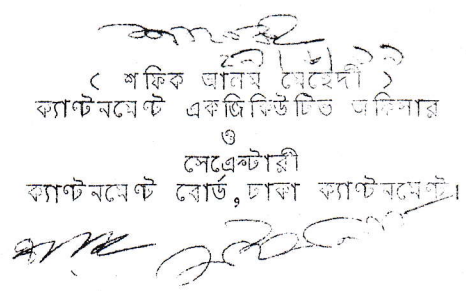 ( শফিক আনাম মেহেদী )
ক্যাণ্টনমেণ্ট একজিকিউটিভ অফিসার
ও
সেক্রেটারী
ক্যাণ্টনমেণ্ট বোর্ড, ঢাকা ক্যাণ্টনমেণ্ট।